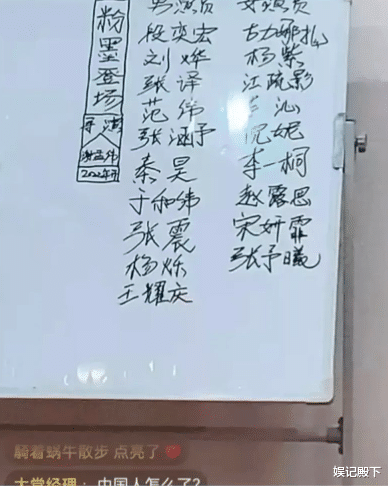 粉墨登场
导演
男演员
段奕宏
刘烨
张译
范伟
张涵予
秦昊
于和伟
张震
杨烁
王耀庆
女演员
古力娜扎
杨紫
江疏影
沁
倪妮
李一桐
赵露思
宋妍霏
张予曦
骑着蜗牛散步 点亮了
大堂经理：中国人怎么了?
娱记殿下